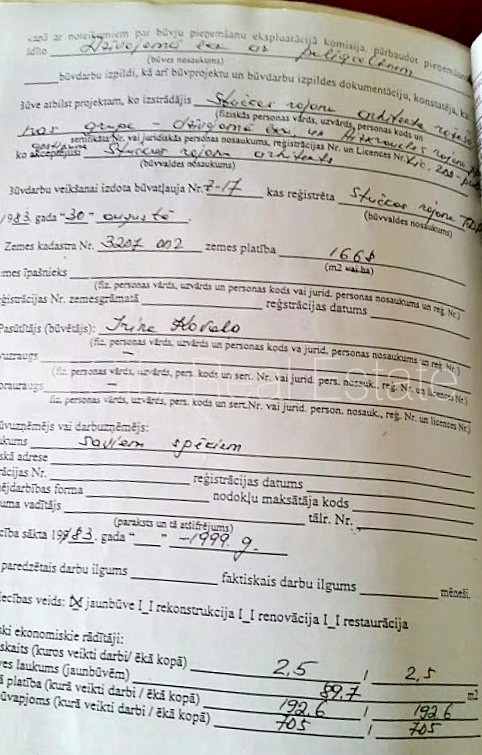 kaņā ar noteikumiem par būvju pieņemšanu ekspluatācijā komisija, pārbaudot pieņemšanai
ādīto Dzīvojamā ēka ar palīgceltnēm
(būves nosaukums)
būvdarbu izpildi, kā arī būvprojektu un būvdarbu izpildes dokumentāciju, konstatēja, ka
būve atbilst projektam, ko izstrādājis Stučkas rajona arhitekta
(fiziskās personas vārds, uzvārds, personas kods un
grupa - dzīvojamā ēka, un
sertifikāta Nr. vai juridiskās personas nosaukums, reģistrācijas Nr. un Licences Nr.)
ko akceptējusi Stučkas rajona arhitekts
(būvvaldes nosaukums)
Būvdarbu veikšanai izdota būvatļauja Nr. 7-17 kas reģistrēta Stučkas rajona
(būvvaldes nosaukums)
1983. gada "30" augustā.
Zemes kadastra Nr. 3207 002 zemes platība 1668
(m2 vai ha)
mes īpašnieks
(fiz. personas vārds, uzvārds un personas kods vai jurid. personas nosaukums un reģ. Nr.)
eģistrācijas Nr. zemesgrāmatā reģstrācijas datums
Pasūtītājs (būvētājs): Irina Kovaļo
(fiz. personas vārds, uzvārds un personas kods va jurid. personas nosaukums un reģ. Nr.)
vuzraugs –
(fiz. personas vārds, uzvārds, pers. kods un sert. Nr. vai jurid. pers. nosauk., reģ. Nr. un licences Nr.)
oruraugs –
fiz. personas vārds, uzvārds, pers. kods un sert.Nr. vai jurid. person. nosauk., reģ. Nr. un licences Nr.)
ūvuzņēmējs vai darbuzņēmējs:
ukums saviem spēkiem
skā adrese
rācijas Nr. reģistrācijas datums
ējdarbības forma nodokļu maksātāja kods
uma vadītājs tālr. Nr.
(paraksts un tā atšifrējums)
cība sākta 1983. gada " " -1999. g.
paredzētais darbu ilgums faktiskais darbu ilgums mēneši.
iecības veids: I_I jaunbūve I_I rekonstrukcija I_I renovācija I_I restaurācija
ski ekonomiskie rādītāji:
skaits (kuros veikti darbi/ ēkā kopā) 2,5 / 2,5
ves laukums (jaunbūvēm) 89,7 m2
ā platība (kurā veikti darbi / ēkā kopā) 192,6 / 192,6
ūvapjoms (kurā veikti darbi / ēkā kopā) 705 / 705
Real Estate